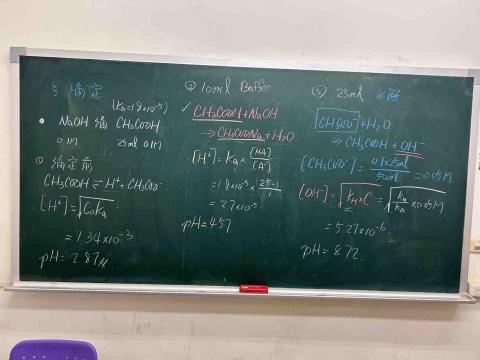 § 滴定
(Ka=1.8×10⁻⁵)
NaOH 滴 CH₃COOH
0.1M 25ml 0.1M
① 滴定前
CH₃COOH ⇌ H⁺+CH₃COO⁻
[H⁺]=√CoKa
=1.34×10⁻³
pH=2.87
② 10ml Buffer
✓ CH₃COOH+NaOH
→ CH₃COONa+H₂O
[H⁺]=Ka×[HA]/[A⁻]
=1.8×10⁻⁵×
=2.7×10⁻⁵
pH=4.57
③ 25ml 水解
CH₃COO⁻+H₂O
→ CH₃COOH+OH⁻
[CH₃COO⁻]=0.1×25ml/50ml=0.05M
[OH⁻]=√KH×C=√Kw/Ka×0.05M
=5.27×10⁻⁶
pH=8.72